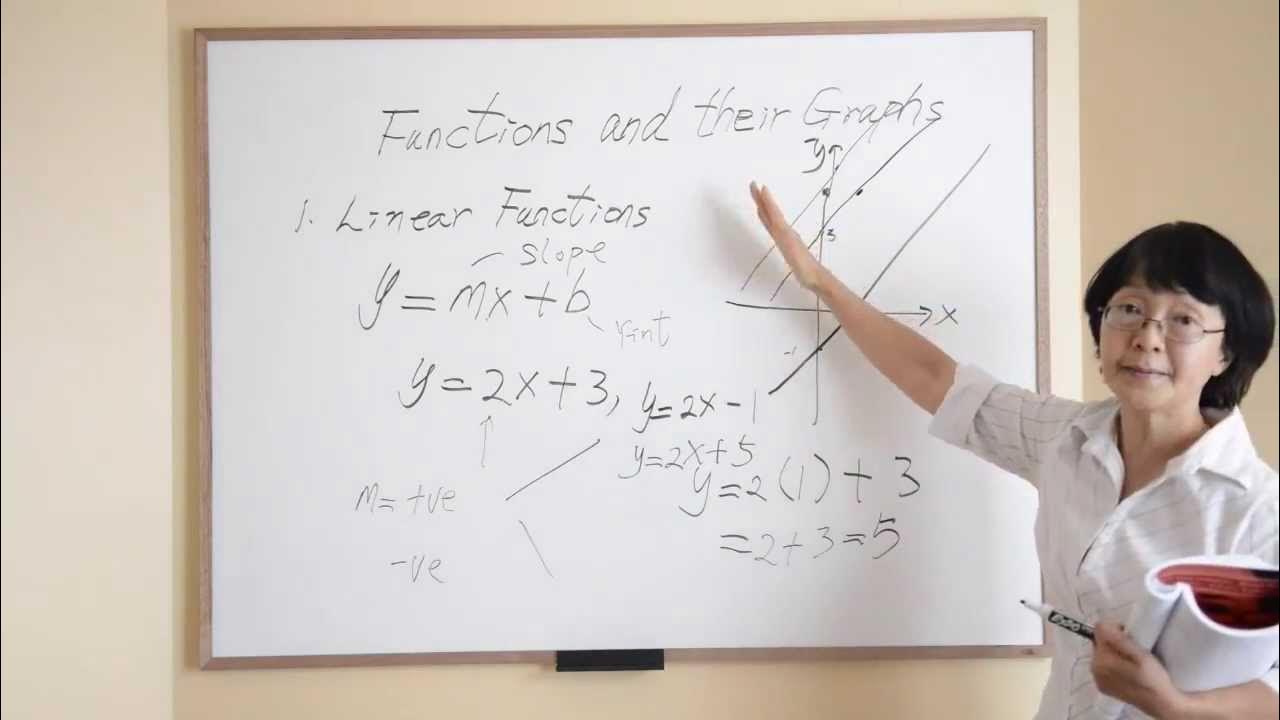 Functions and their Graphs
1. Linear Functions
slope
y = mx + b
y int
y = 2x + 3, y = 2x - 1
y = 2x + 5
y = 2(1) + 3
= 2 + 3 = 5
m = +ve
-ve
y
3
x
-1
EXPO